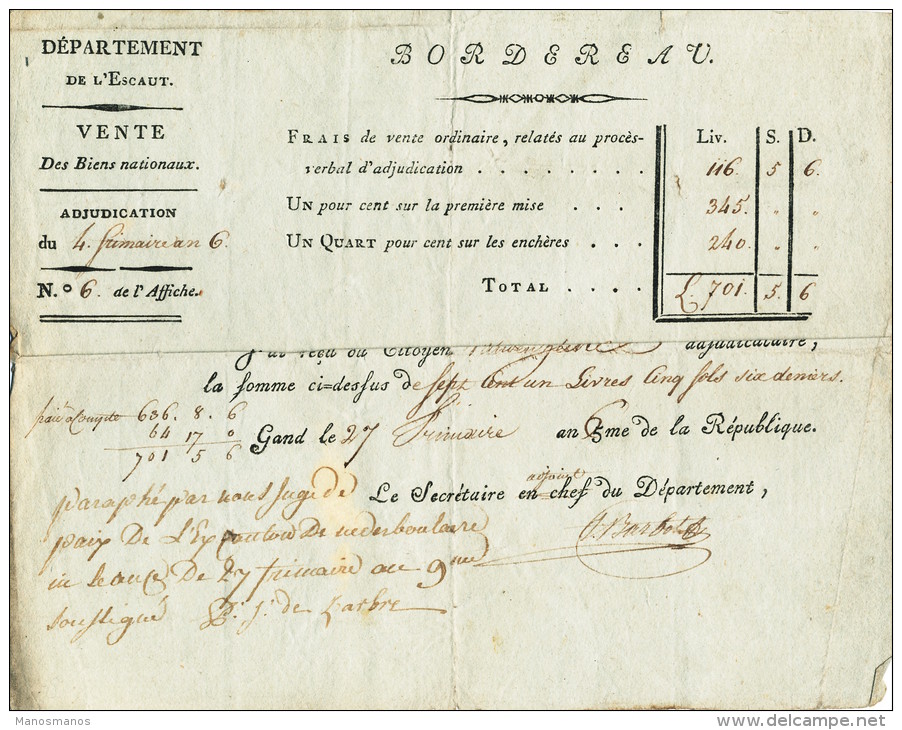 DÉPARTEMENT
DE L'ESCAUT.
VENTE
Des Biens nationaux.
ADJUDICATION
du 4. frimaire an 6.
N.º 6. de l'Affiche.
BORDEREAU.
Liv. S. D.
FRAIS de vente ordinaire, relatés au procès-
verbal d'adjudication . . . . . . . . 116. 5 6.
UN pour cent sur la première mise . . . 345. " "
UN QUART pour cent sur les enchères . . . 240. " "
TOTAL . . . . £. 701. 5. 6
J'ai reçu du Citoyen adjudicataire,
la somme ci=dessus de sept Cent un Livres Cinq sols six deniers.
paié a Compte 636. 8. 6
64 17 0
701 5 6
Gand le 27 frimaire an 6me de la République.
adjoint
Le Secrétaire en chef du Département,
paraphé par nous Juge de
paix De L'Ex Canton De nederboulaire
in seance De 27 frimaire an 9me
soussigné
Manosmanos
delcampe.net